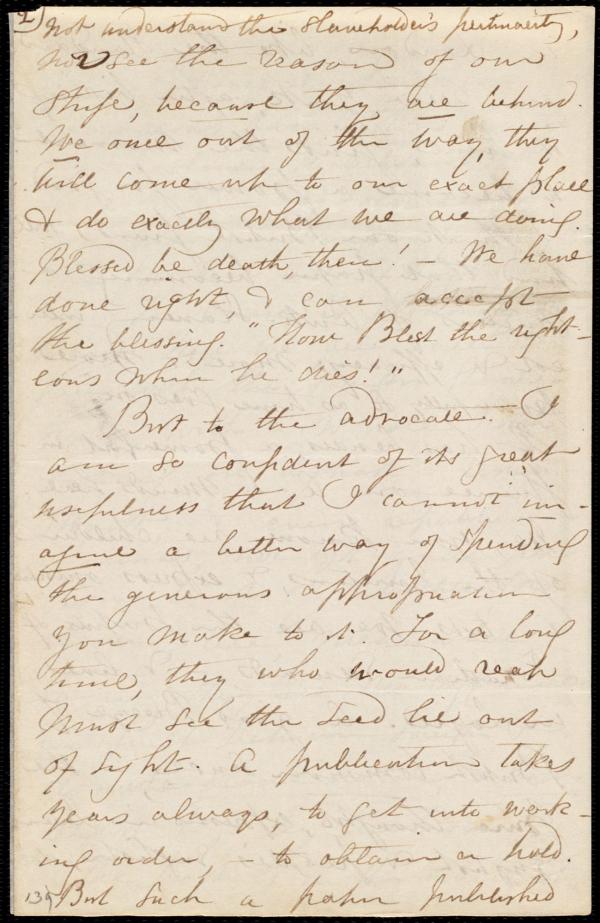 2
not understand the slaveholder's pertinacity,
nor see the reason of our
strife, because they are behind.
We once out of the way, they
will come up to our exact place
& do exactly what we are doing.
Blessed be death, then! – We have
done right, & can accept
the blessing. "How Blest the right-
eous when he dies!"
But to the advocate. I
am so confident of its great
usefulness that I cannot im-
agine a better way of spending
the generous appropriation
you make to it. For a long
time, they who would reap
must see the seed lie out
of sight. A publication takes
years always, to get into work-
ing order, – to obtain a hold.
But such a paper published
139